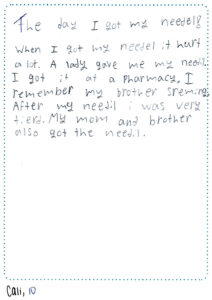 The day I got my needel!
When I got my needel it hurt
a lot. A lady gave me my needil.
I got it at a Pharmacy. I
remember my brother sreming.
After my needil i was very
tierd. My mom and brother
also got the needil.
Cali, 10